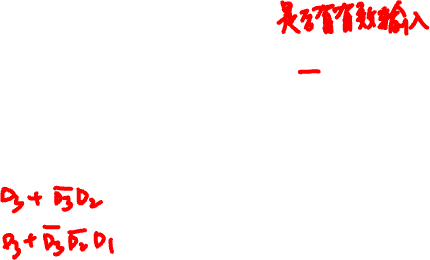 是否有有效输入
—
D₃ + D̅₃D₂
D₃ + D̅₃D̅₂D₁